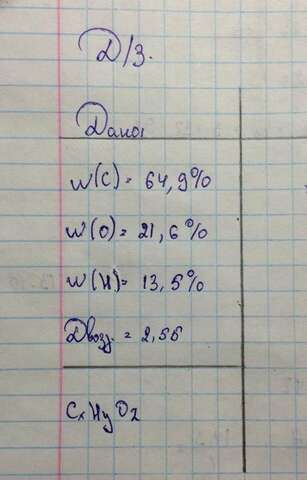 Д/З.
Дано:
w(C) = 64,9%
w(O) = 21,6%
w(H) = 13,5%
Dвозд. = 2,55
CxHyOz